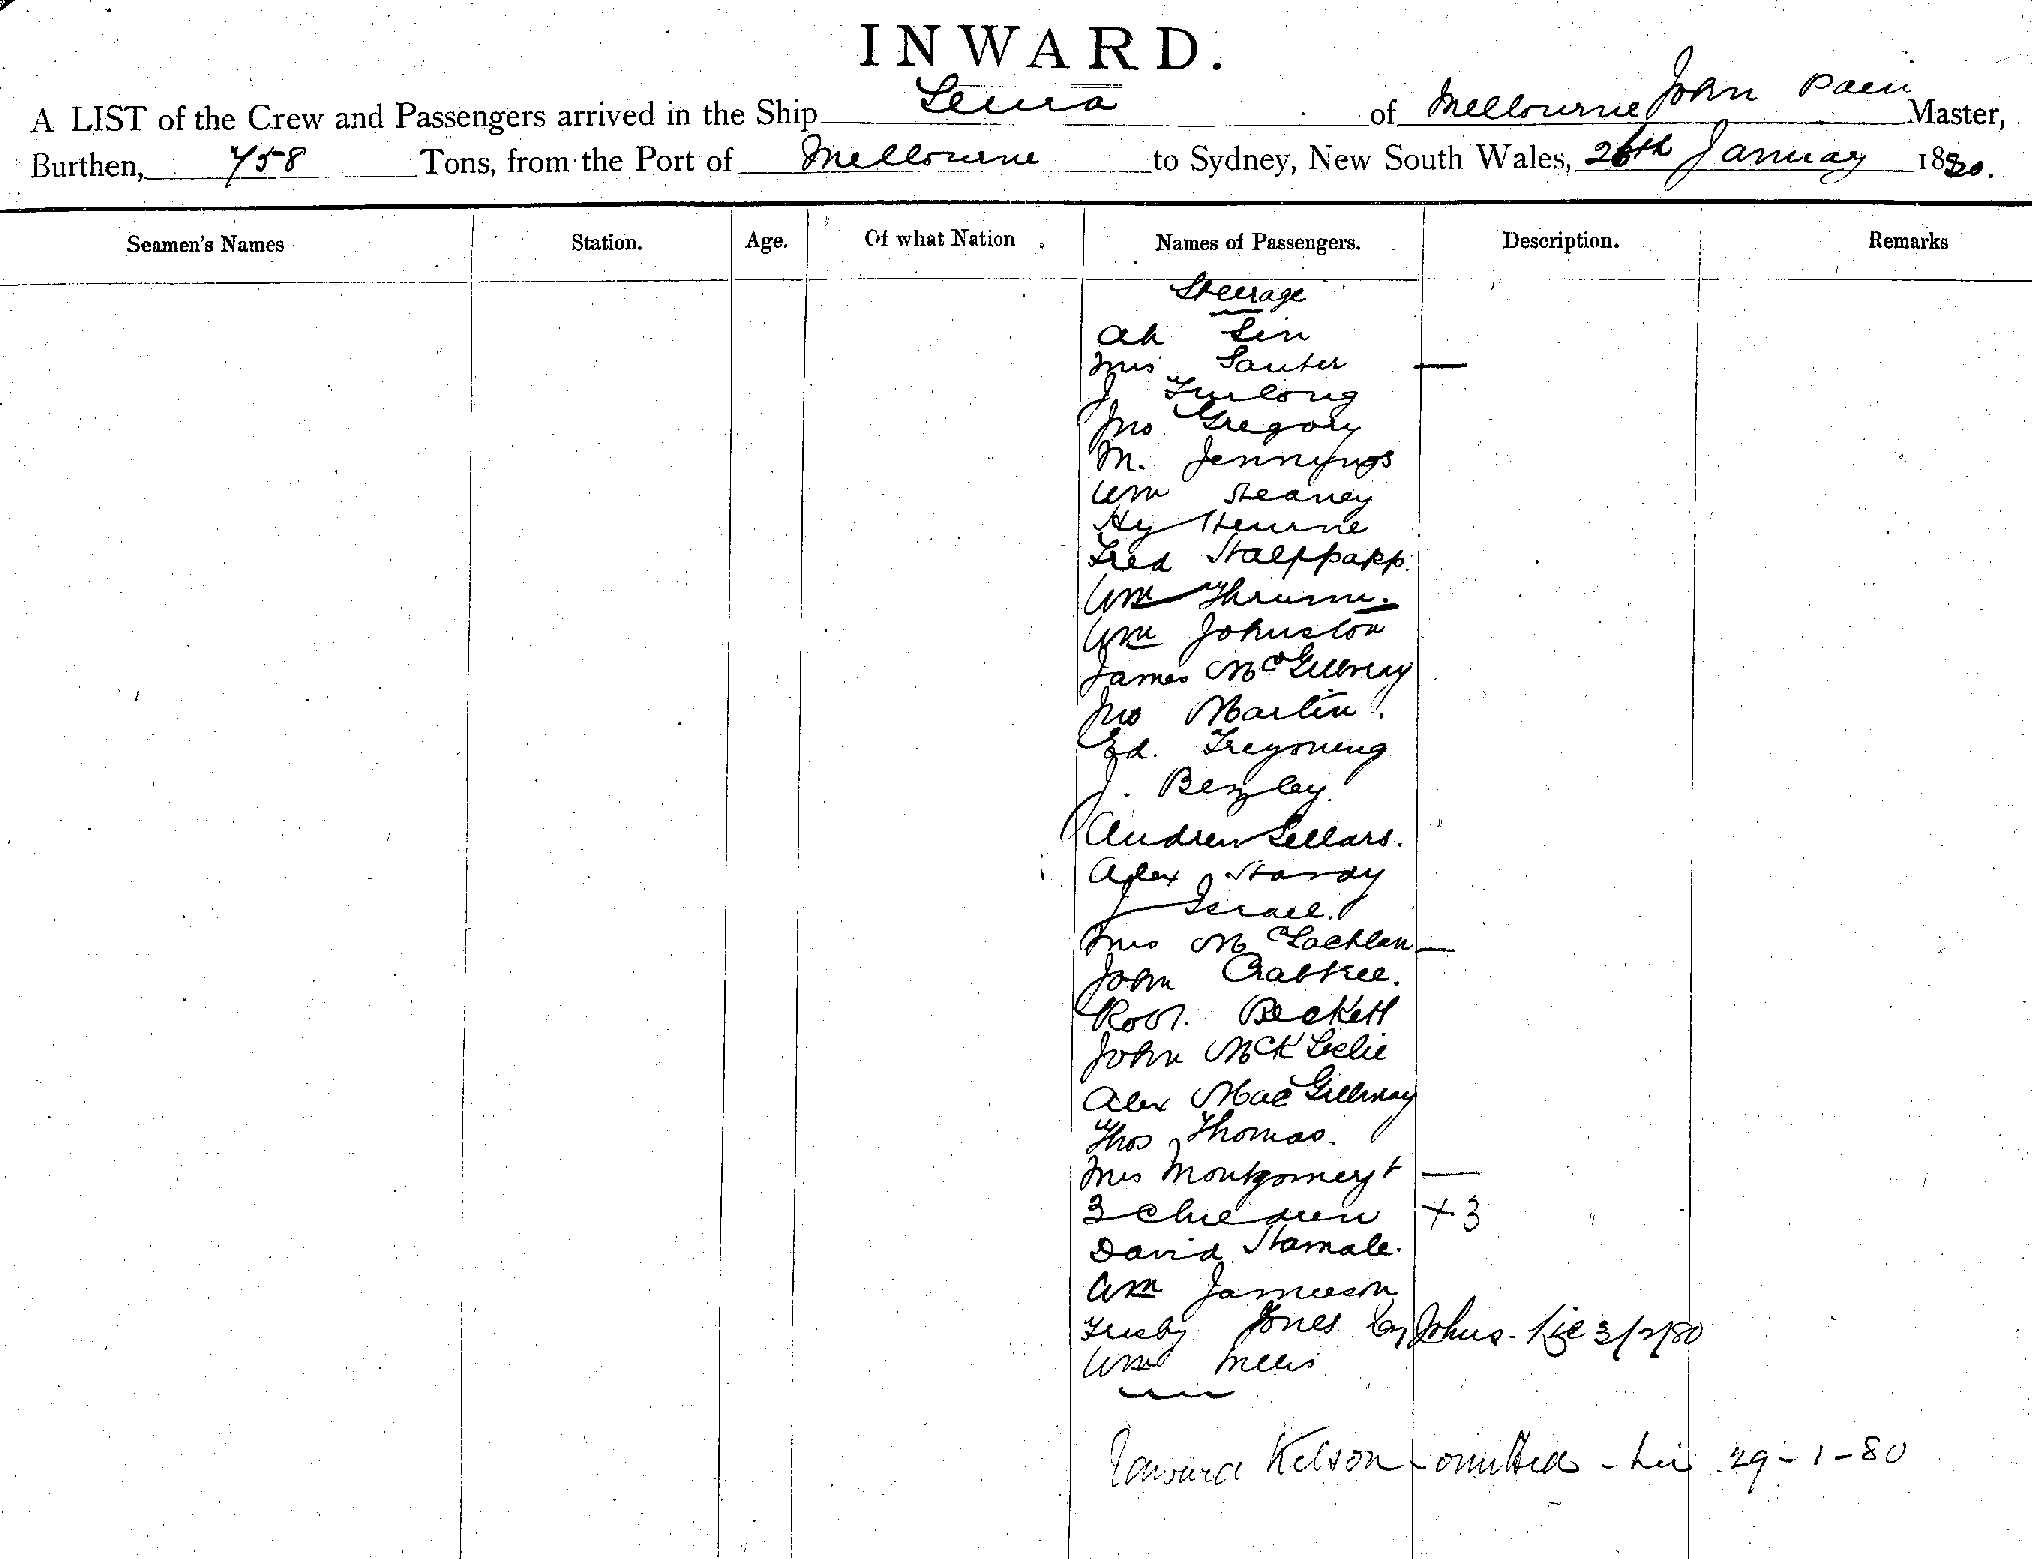 INWARD.
A LIST of the Crew and Passengers arrived in the Ship Leura of Melbourne John Pain Master,
Burthen, 458 Tons, from the Port of Melbourne to Sydney, New South Wales, 26th January 1880.
Seamen's Names Station. Age. Of what Nation Names of Passengers. Description. Remarks
Steerage
Ah Sin
Mrs Sauter —
J Furlong
Jno Gregory
M. Jennings
Wm Heaney
Hy Hearne
Fred
Wm
Wm Johnston
James McGillvray
Jno Martin.
Ed. Tregoning
J. Bezley
Andrew Sellars.
Alex Hardy
J Israel.
Mrs McLachlan —
John Crabtree.
Robt. Beckett
John McK Leslie
Alex MacGillvray
Thos Thomas.
Mrs Montgomery + —
3 children + 3
David Hamale.
Wm Jamieson
Jones by Johns. 3/2/80
Wm
Edward Kelson - omitted - 29-1-80